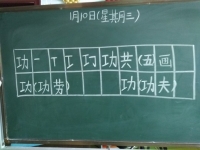 1月10日(星期三)
功一丅工巧功共(五画
功(功劳) 功(功夫)